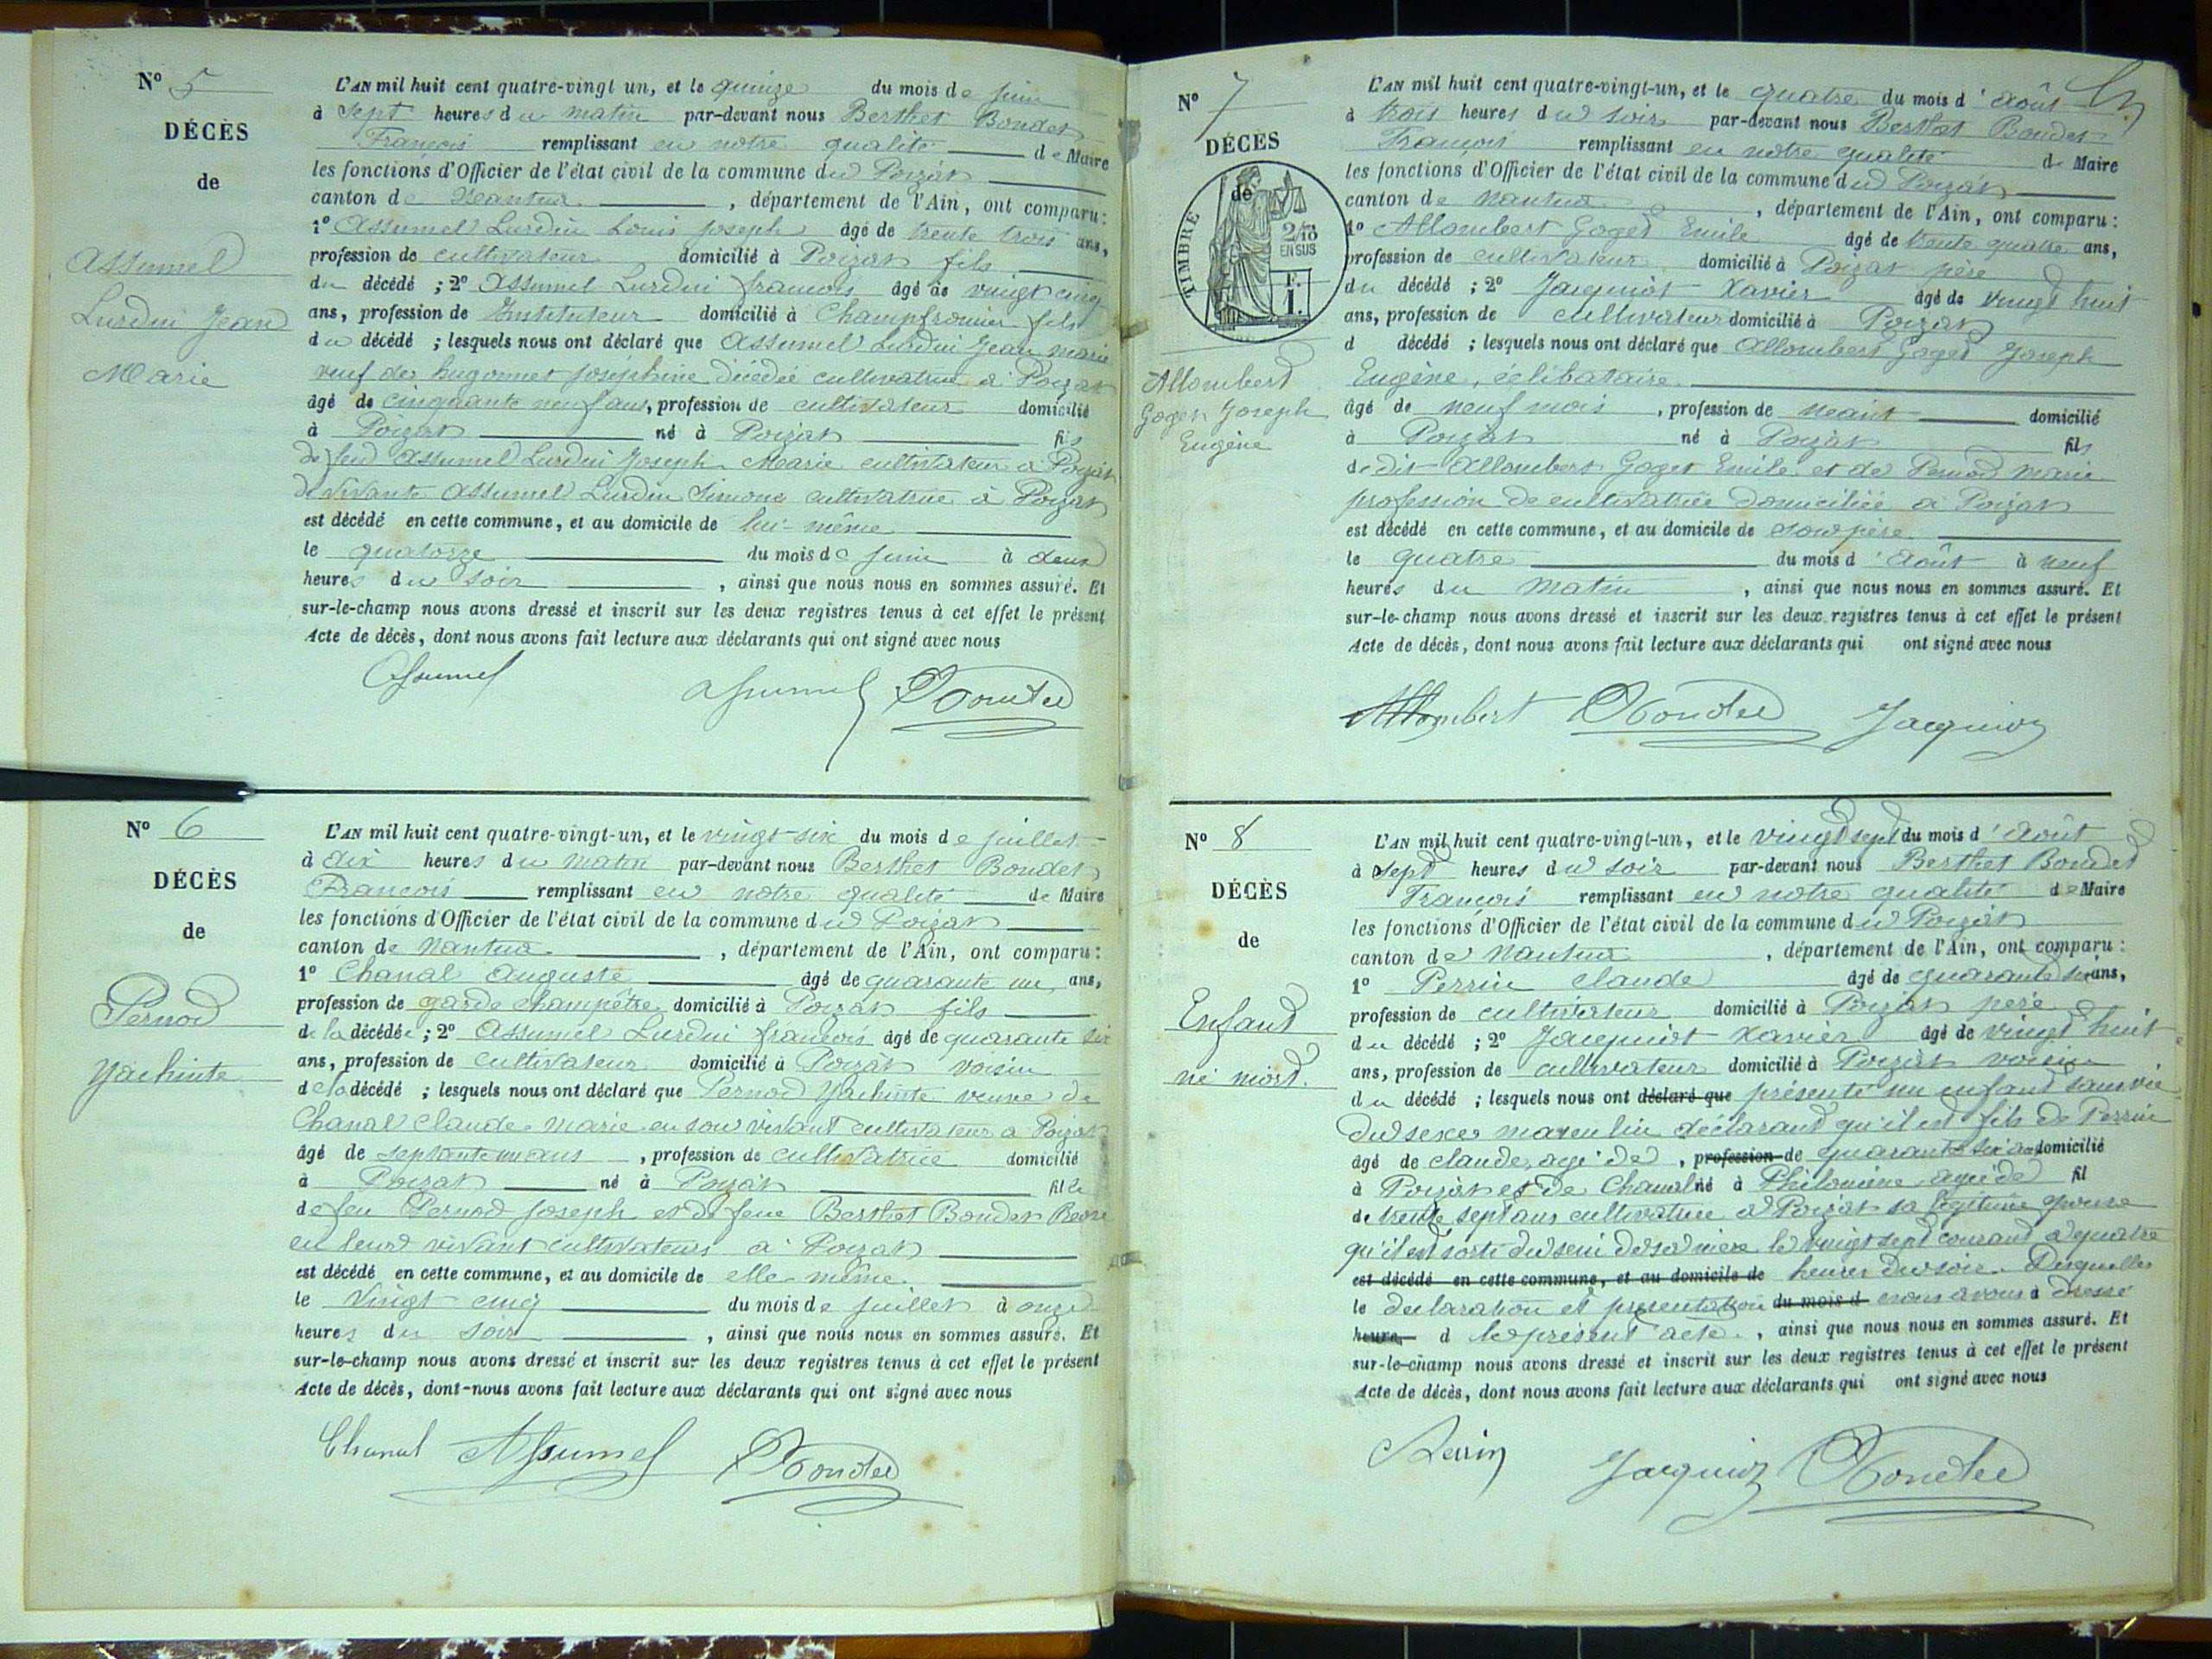 Nº 5
DÉCÈS
de
Assumel
Lurdin Jean
Marie
L'AN mil huit cent quatre-vingt un, et le quinze du mois de juin
à sept heures du matin par-devant nous Berthet Bondet
François remplissant en notre qualité de Maire
les fonctions d'Officier de l'état civil de la commune du Poizat
canton de Nantua, département de l'Ain, ont comparu:
1º Assumel Lurdin Louis joseph âgé de trente trois ans,
profession de cultivateur domicilié à Poizat fils
du décédé ; 2º Assumel Lurdin françois âgé de vingt cinq
ans, profession de Instituteur domicilié à Champfromier fils
du décédé ; lesquels nous ont déclaré que Assumel Lurdin Jean marie
veuf de hugonnet joséphine décédée cultivatrice à Poizat
âgé de cinquante neuf ans, profession de cultivateur domicilié
à Poizat né à Poizat fils
de feu Assumel Lurdin Joseph Marie cultivateur à Poizat
de vivante Assumel Lurdin Simone cultivatrice à Poizat
est décédé en cette commune, et au domicile de lui-même
le quatorze du mois de juin à deux
heures du soir, ainsi que nous nous en sommes assuré. Et
sur-le-champ nous avons dressé et inscrit sur les deux registres tenus à cet effet le présent
Acte de décès, dont nous avons fait lecture aux déclarants qui ont signé avec nous
Assumel Assumel Bondet
Nº 6
DÉCÈS
de
Pernod
Yachinte
L'AN mil huit cent quatre-vingt-un, et le vingt-six du mois de juillet
à dix heures du matin par-devant nous Berthet Bondet
François remplissant en notre qualité de Maire
les fonctions d'Officier de l'état civil de la commune du Poizat
canton de Nantua, département de l'Ain, ont comparu:
1º Chanal Auguste âgé de quarante un ans,
profession de garde champêtre domicilié à Poizat fils
de la décédée ; 2º Assumel Lurdin françois âgé de quarante six
ans, profession de cultivateur domicilié à Poizat voisin
de la décédé ; lesquels nous ont déclaré que Pernod Yachinte veuve de
Chanal Claude Marie en son vivant cultivateur à Poizat
âgé de septante un ans, profession de cultivatrice domicilié
à Poizat né à Poizat fille
de feu Pernod Joseph et de feue Berthet Bondet
en leur vivant cultivateurs à Poizat
est décédé en cette commune, et au domicile de elle même
le vingt cinq du mois de juillet à onze
heures du soir, ainsi que nous nous en sommes assuré. Et
sur-le-champ nous avons dressé et inscrit sur les deux registres tenus à cet effet le présent
Acte de décès, dont-nous avons fait lecture aux déclarants qui ont signé avec nous
Chanal Assumel Bondet
Nº 7
DÉCÈS
de
TIMBRE
2/10
EN SUS
F.
1.
Allombert
Goget Joseph
Eugène
L'AN mil huit cent quatre-vingt-un, et le quatre du mois d'août
à trois heures du soir par-devant nous Berthet Bondet
François remplissant en notre qualité de Maire
les fonctions d'Officier de l'état civil de la commune du Poizat
canton de Nantua, département de l'Ain, ont comparu :
1º Allombert Goget Emile âgé de trente quatre ans,
profession de cultivateur domicilié à Poizat père
du décédé ; 2º Jacquiot Xavier âgé de vingt huit
ans, profession de cultivateur domicilié à Poizat
d décédé ; lesquels nous ont déclaré que Allombert Goget Joseph
Eugène, célibataire
âgé de neuf mois, profession de néant domicilié
à Poizat né à Poizat fils
de dit Allombert Goget Emile et de Pernod Marie
profession de cultivatrice domiciliée à Poizat
est décédé en cette commune, et au domicile de son père
le quatre du mois d'août à neuf
heures du matin, ainsi que nous nous en sommes assuré. Et
sur-le-champ nous avons dressé et inscrit sur les deux registres tenus à cet effet le présent
Acte de décès, dont nous avons fait lecture aux déclarants qui ont signé avec nous
Allombert Bondet Jacquiot
Nº 8
DÉCÈS
de
Enfant
né mort.
L'AN mil huit cent quatre-vingt-un, et le vingt sept du mois d'août
à sept heures du soir par-devant nous Berthet Bondet
François remplissant en notre qualité de Maire
les fonctions d'Officier de l'état civil de la commune du Poizat
canton de Nantua, département de l'Ain, ont comparu :
1º Perrin Claude âgé de quarante six ans,
profession de cultivateur domicilié à Poizat père
du décédé ; 2º Jacquiot Xavier âgé de vingt huit
ans, profession de cultivateur domicilié à Poizat voisin
du décédé ; lesquels nous ont déclaré que présenté un enfant sans vie
du sexe masculin déclarant qu'il est fils de Perrin
âgé de claude, agé de, profession de quarante six ans domicilié
à Poizat et de Chanal né à Philomène agée de fil
de trente sept ans cultivatrice à Poizat sa légitime épouse
qu'il est sorti du sein de sa mère le vingt sept courant à quatre
est décédé en cette commune, et au domicile de heures du soir. Desquelles
le déclaration et présentation du mois d nous avons à dressé
heure d le présent acte., ainsi que nous nous en sommes assuré. Et
sur-le-champ nous avons dressé et inscrit sur les deux registres tenus à cet effet le présent
Acte de décès, dont nous avons fait lecture aux déclarants qui ont signé avec nous
Perrin Jacquiot Bondet